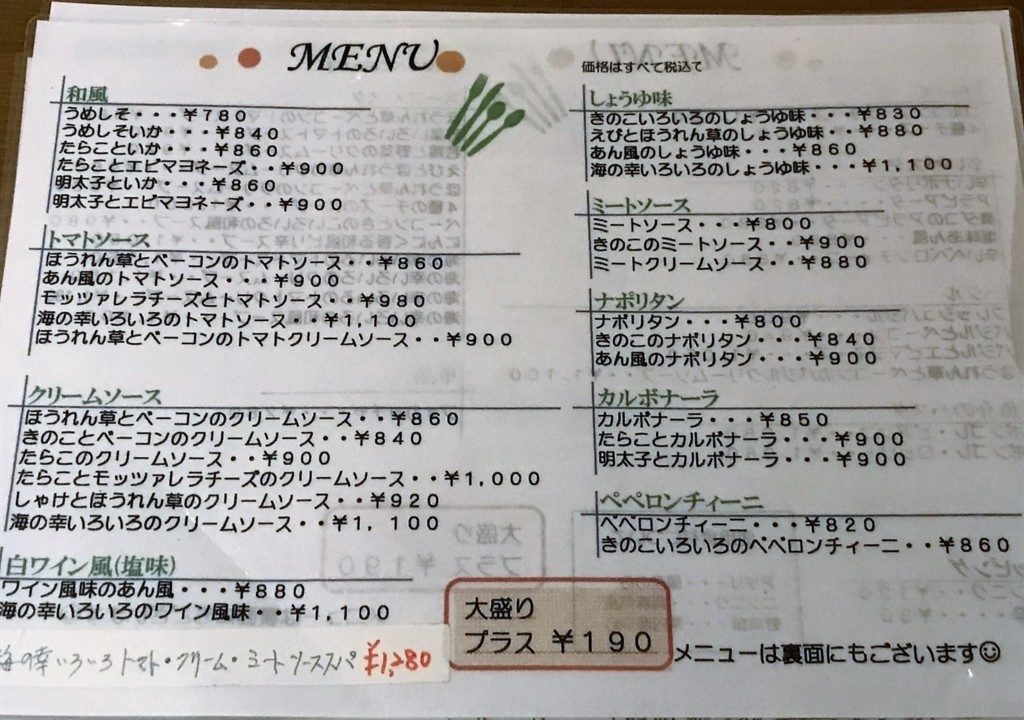 MENU
価格はすべて税込て
和風
うめしそ・・・￥780
うめしそいか・・・￥840
たらこといか・・・￥860
たらことエビマヨネーズ・・￥900
明太子といか・・・￥860
明太子とエビマヨネーズ・・￥900
トマトソース
ほうれん草とベーコンのトマトソース・・￥860
あん風のトマトソース・・・￥900
モッツァレラチーズとトマトソース・・￥980
海の幸いろいろのトマトソース・・￥1,100
ほうれん草とベーコンのトマトクリームソース・・￥900
クリームソース
ほうれん草とベーコンのクリームソース・・￥860
きのことベーコンのクリームソース・・￥840
たらこのクリームソース・・￥900
たらことモッツァレラチーズのクリームソース・・￥1,000
しゃけとほうれん草のクリームソース・・￥920
海の幸いろいろのクリームソース・・￥1,100
白ワイン風(塩味)
ワイン風味のあん風・・・￥880
海の幸いろいろのワイン風味・・￥1,100
海の幸いろいろトマト・クリーム・ミートソーススパ ¥1,280
しょうゆ味
きのこいろいろのしょうゆ味・・・￥830
えびとほうれん草のしょうゆ味・・￥880
あん風のしょうゆ味・・・￥860
海の幸いろいろのしょうゆ味・・￥1,100
ミートソース
ミートソース・・・￥800
きのこのミートソース・・￥900
ミートクリームソース・・￥880
ナポリタン
ナポリタン・・・￥800
きのこのナポリタン・・・￥840
あん風のナポリタン・・・￥900
カルボナーラ
カルボナーラ・・・￥850
たらことカルボナーラ・・￥900
明太子とカルボナーラ・・￥900
ペペロンチィーニ
ペペロンチィーニ・・・￥820
きのこいろいろのペペロンチィーニ・・￥860
大盛り
プラス ￥190
メニューは裏面にもございます☺